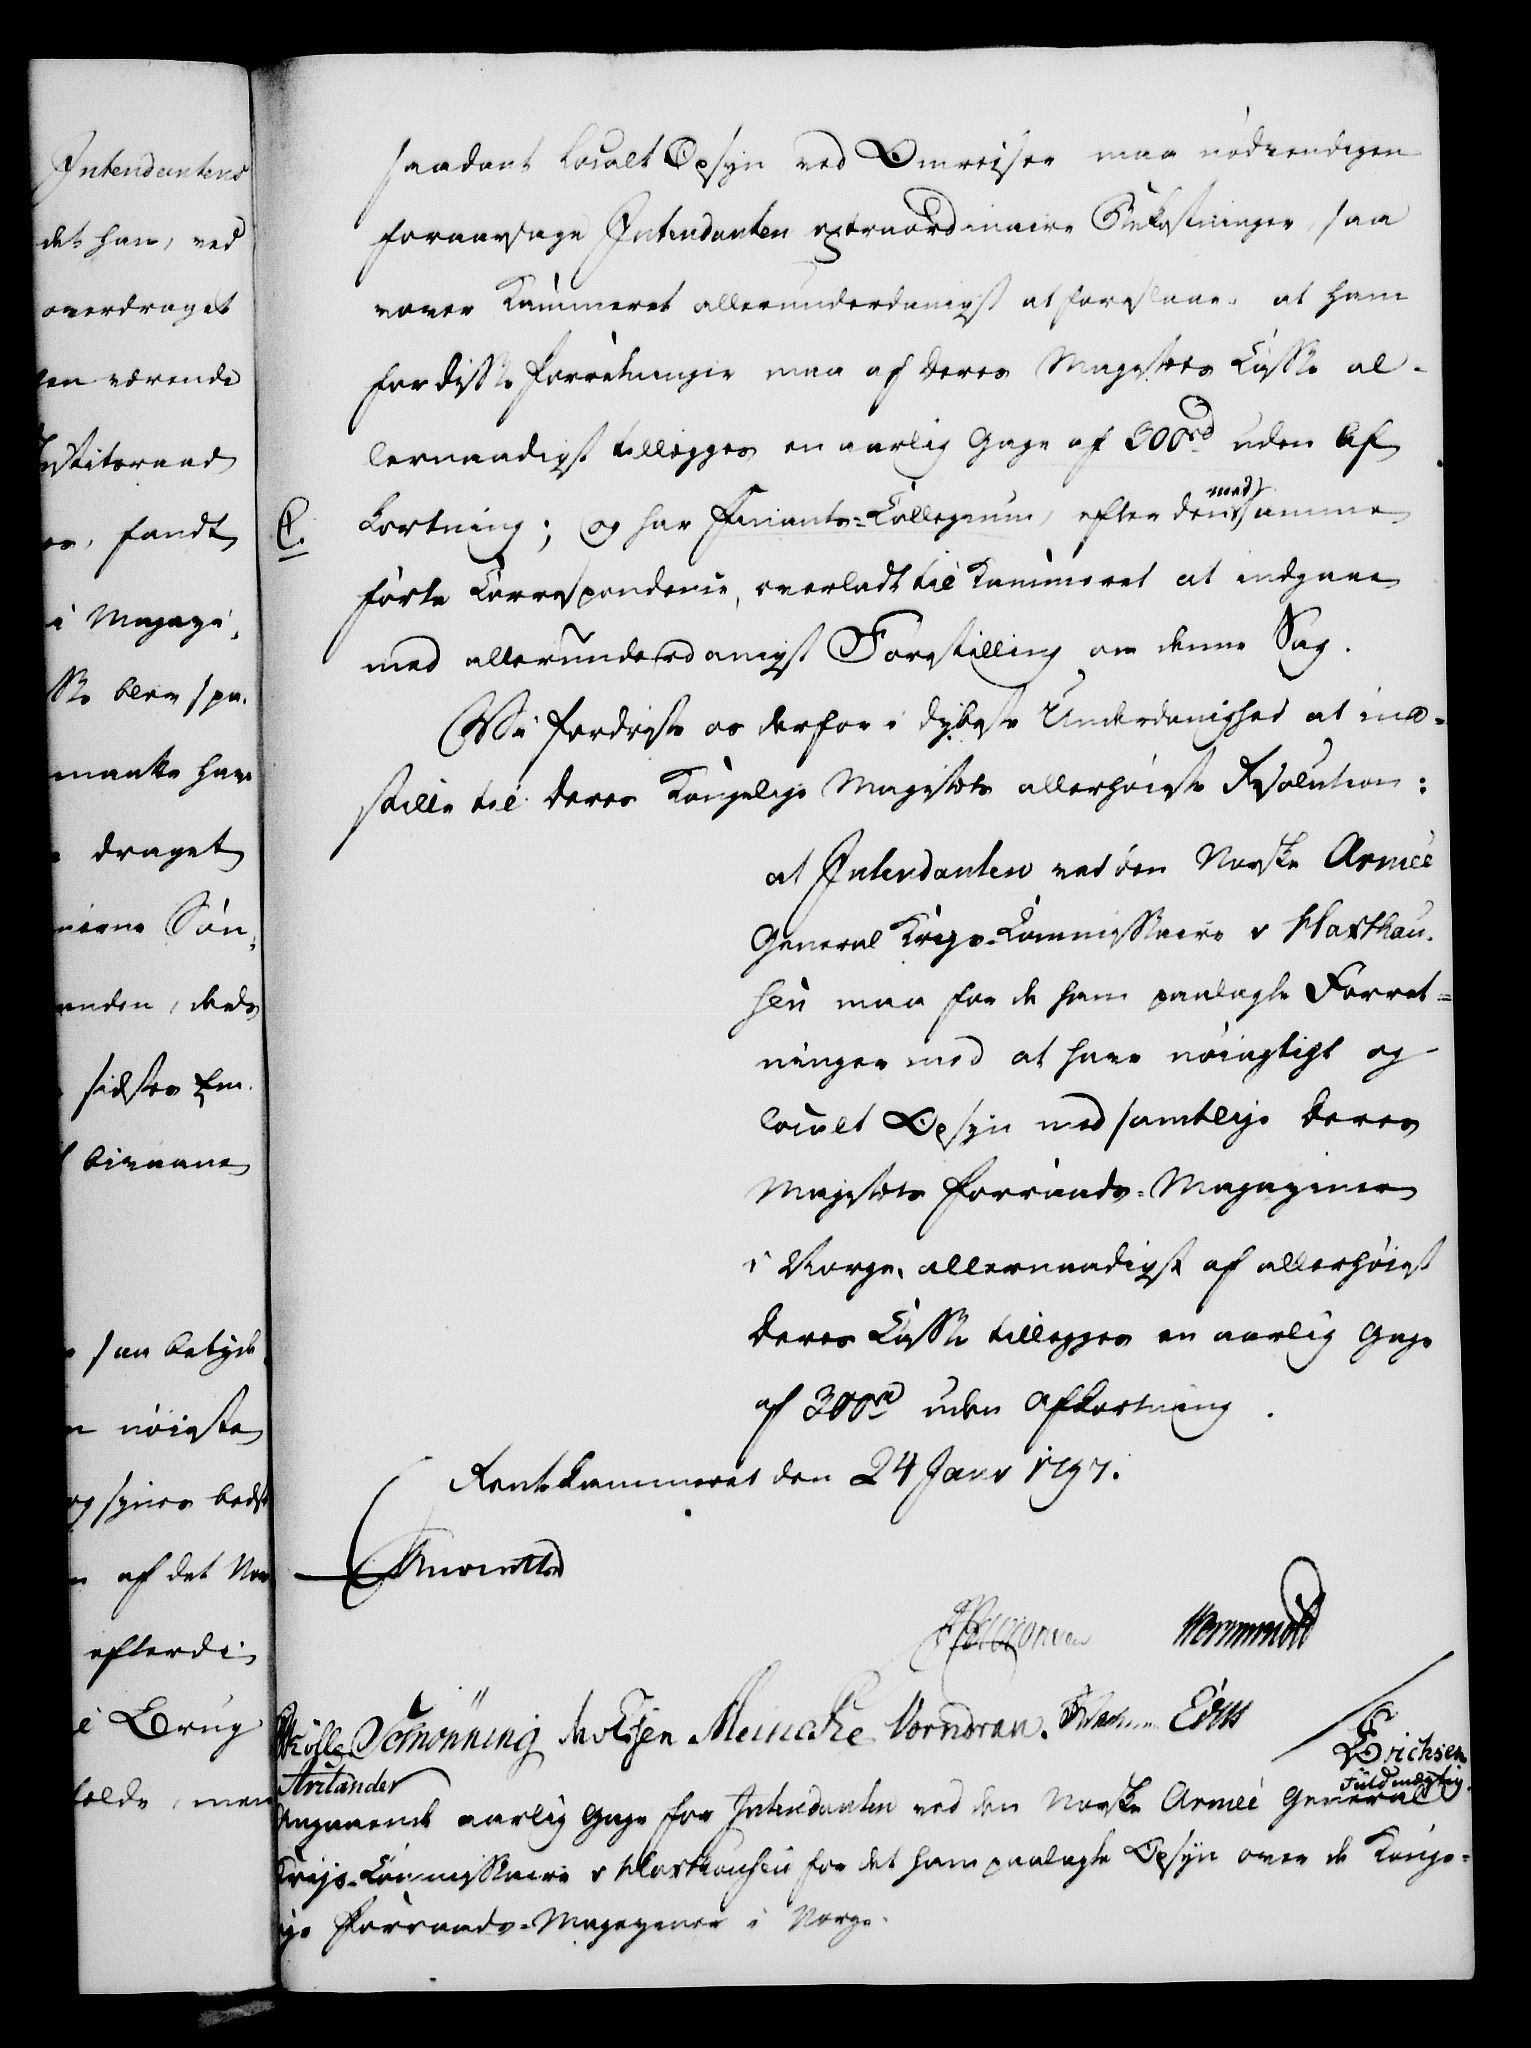 Intendantens
det han, ved
overdraget
en værende
Justitsraad
es, fandt
i Magazi-
blev
maatte have
draget
Søn-
anden, deels
sidstes Em-
bivaane
saa betyde
nøieste
og synes bedst
af det Nor
efterdi
i Brug
men
saadant localt Opsyn ved Omreiser maa nødvendigen
foraarsage Intendanten extraordinaire Bekostninger, saa
vover Kammeret allerunderdanigst at foreslaae, at ham
for disse Forretninger maa af Deres Majestæts Casse al-
lernaadigst tillægges en aarlig Gage af 300 rd uden Af-
kortning; og har Finants-Collegium, efter den med samme
førte Correspondence, overladt til Kammeret at indgaae
med allerunderdanigst Forestilling om denne Sag.
Vi fordriste os derfor i dybeste Underdanighed at ind-
stille til Deres Kongelige Majestæts allerhøieste Resolution:
at Intendanten ved den Norske Armée
General Krigs-Commissaire v Haxthau-
sen maa for de ham paalagte Forret-
ninger med at have nøiagtigt og
localt Opsyn med samtlige Deres
Majestæts Forraads-Magaziner
i Norge, allernaadigst af allerhøist
Deres Casse tillægges en aarlig Gage
af 300 rd uden Afkortning.
Rentekammeret den 24 Janv 1797.
Reventlow
Wormskiold
Schønning Meincke Vorndran.
Erichsen
Fuldmægtig.
Angaaende aarlig Gage for Intendanten ved den Norske Armée General
Krigs-Commissaire v Haxthausen for det ham paalagte Opsyn over de Konge-
lige Forraads-Magaziner i Norge.